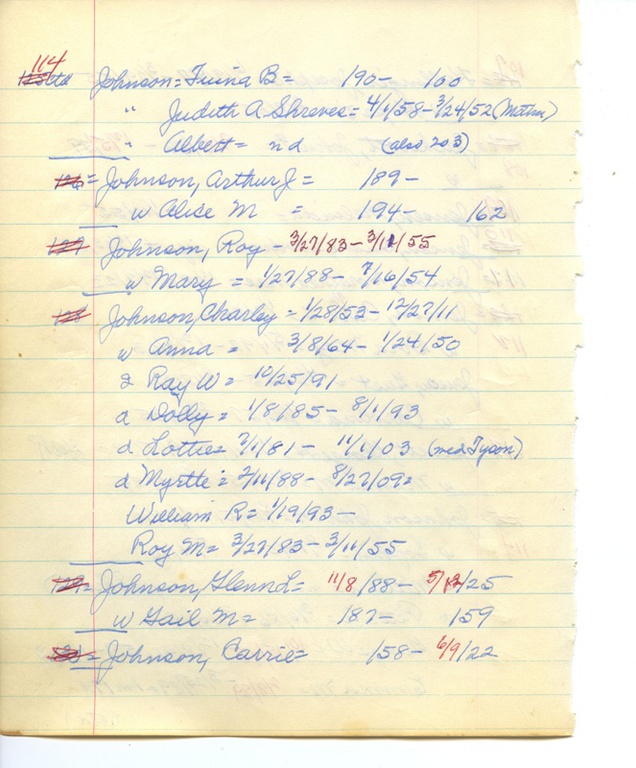 114
Johnson = Irina B = 190- 100
" Judith A. Shreves = 4/1/58 - 3/24/52 (Mother)
" Albert = nd (also 203)
126 = Johnson, Arthur J = 189-
w Alise M = 194- 162
127 Johnson, Roy - 3/27/83 - 3/11/55
w Mary = 1/27/88 - 7/16/54
128 Johnson, Charley = 1/28/53 - 12/27/11
w Anna = 3/8/64 - 1/24/50
Ray W = 10/25/91
d Dolly = 1/8/85 - 8/1/93
d Lottie = 7/1/81 - 11/1/03 (med Tyson)
d Myrtle = 2/11/88 - 8/27/09 =
William R = 1/19/93 -
Roy M = 3/27/83 - 3/11/55
Johnson, Glenn L = 11/8/88 - 5/12/25
w Gail M = 187- 159
= Johnson, Carrie = 158 - 6/9/22